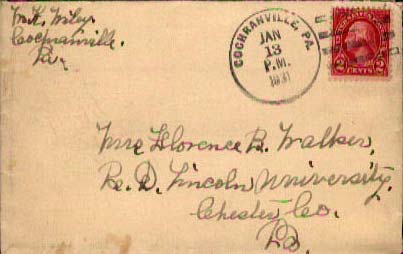 W.K. Wiley
Cochranville.
Pa.
COCHRANVILLE, PA.
JAN
13
P.M.
1931
2 CENTS 2
Mrs Florence B. Walker,
R. D. Lincoln University,
Chester Co.
Pa.